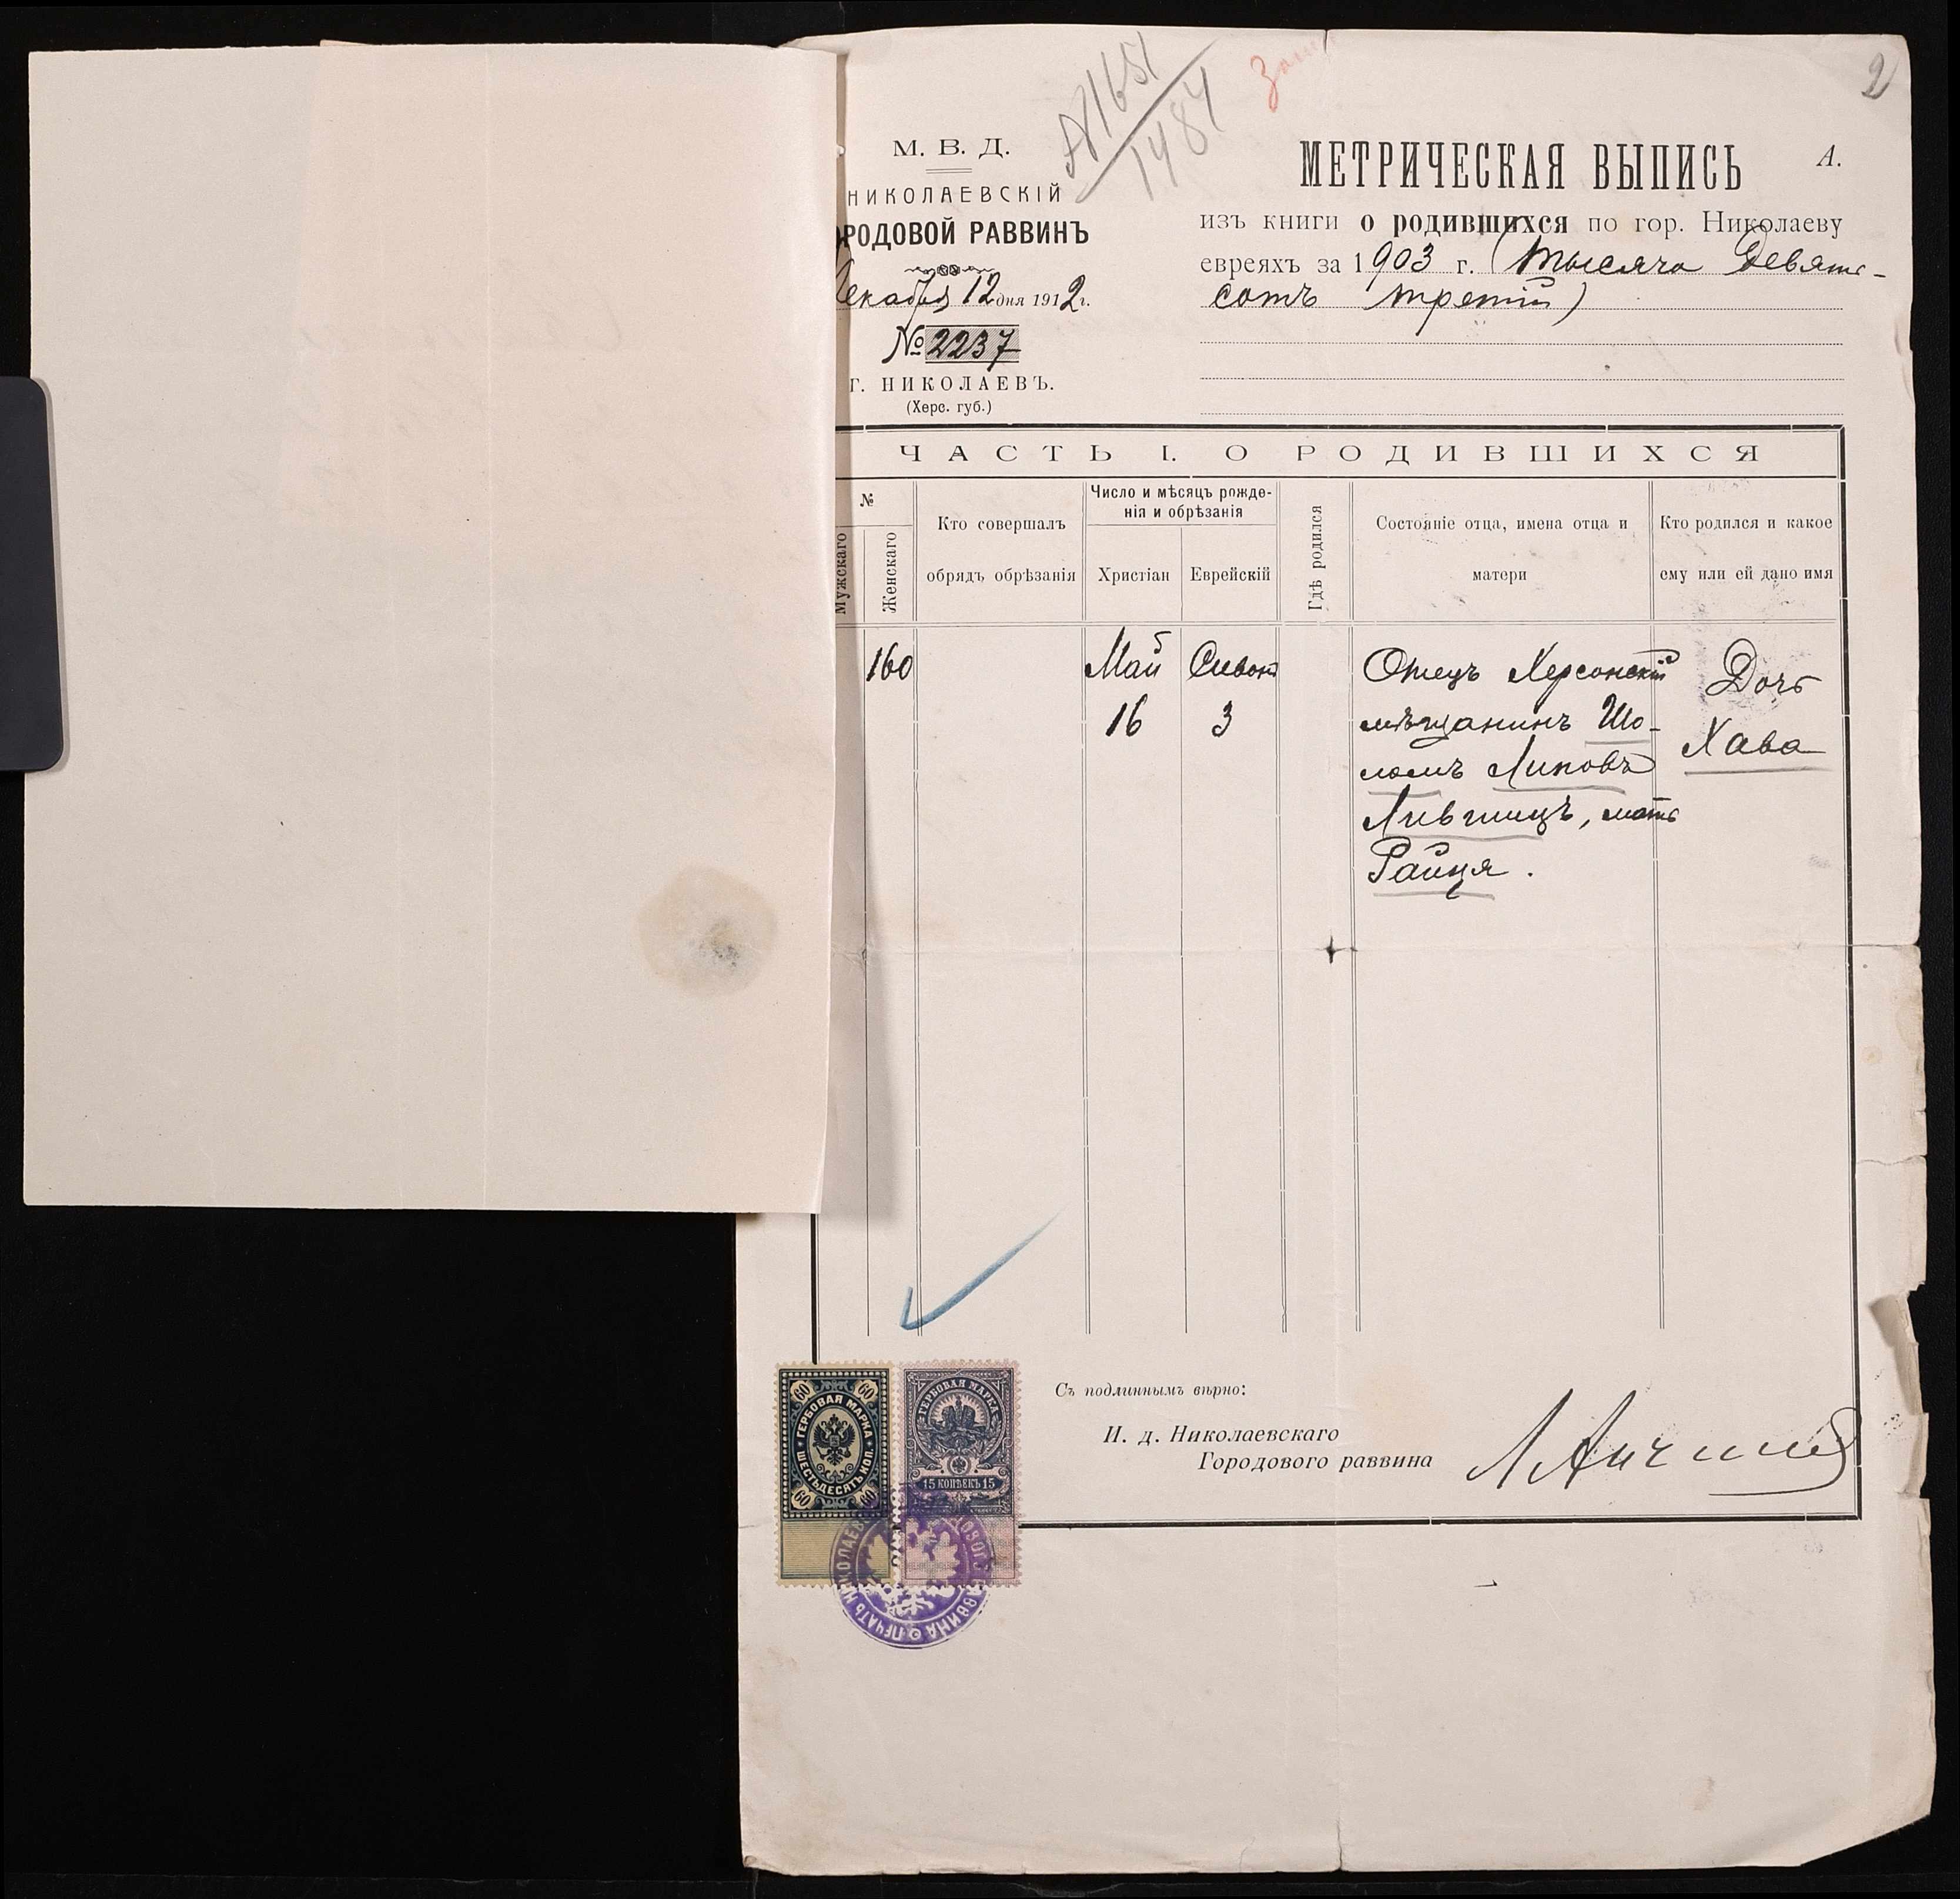 2
1484
М. В. Д.
НИКОЛАЕВСКІЙ
ГОРОДОВОЙ РАВВИНЪ
Декабря 12 дня 1912 г.
№ 2237
Г. НИКОЛАЕВЪ.
(Херс. губ.)
МЕТРИЧЕСКАЯ ВЫПИСЬ
А.
изъ книги о родившихся по гор. Николаеву
евреяхъ за 1903 г. (тысяча девять-
сотъ третій)
ЧАСТЬ I. О РОДИВШИХСЯ
№
Мужскаго
Женскаго
Кто совершалъ
обрядъ обрѣзанія
Число и мѣсяцъ рожде-
нія и обрѣзанія
Христіан
Еврейскій
Гдѣ родился
Состояніе отца, имена отца и
матери
Кто родился и какое
ему или ей дано имя
160
Май
16
Сивон
3
Отецъ Херсонскій
мѣщанинъ Шо-
ломъ Липовъ
Лившицъ, мать
Райця.
Дочь
Хава
60 60
ГЕРБОВАЯ МАРКА
ШЕСТЬДЕСЯТЪ КОП.
60 60
ГЕРБОВАЯ МАРКА
15 КОПѢЕКЪ 15
ПЕЧАТЬ НИКОЛАЕВ
РАВВИНА
Съ подлиннымъ вѣрно:
И. д. Николаевскаго
Городового раввина